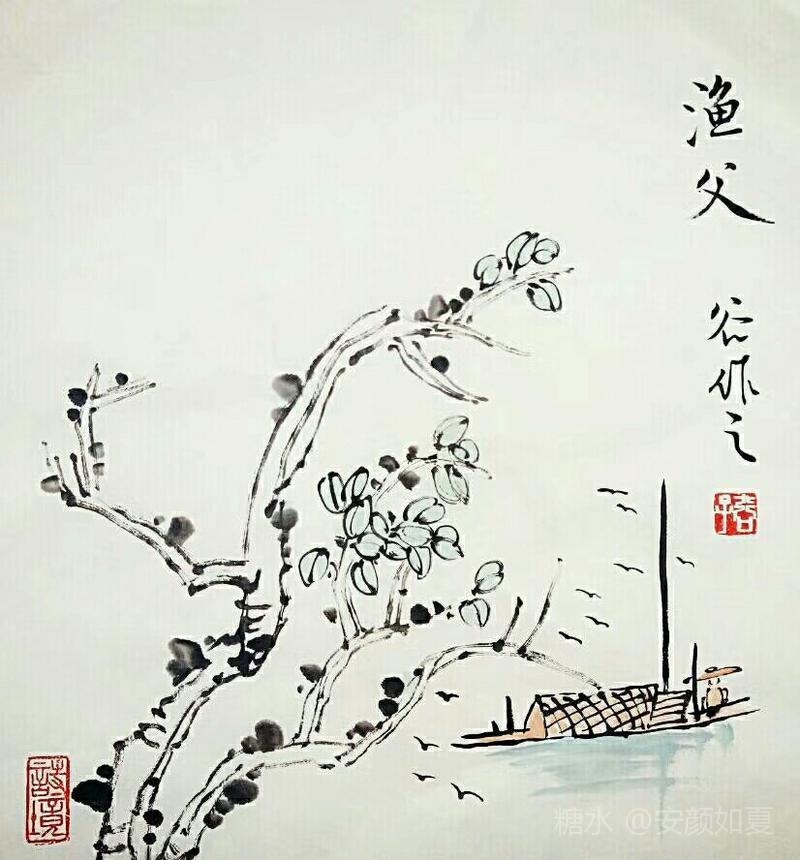 渔父
谷作之
诗境
糖水 @安颜如夏